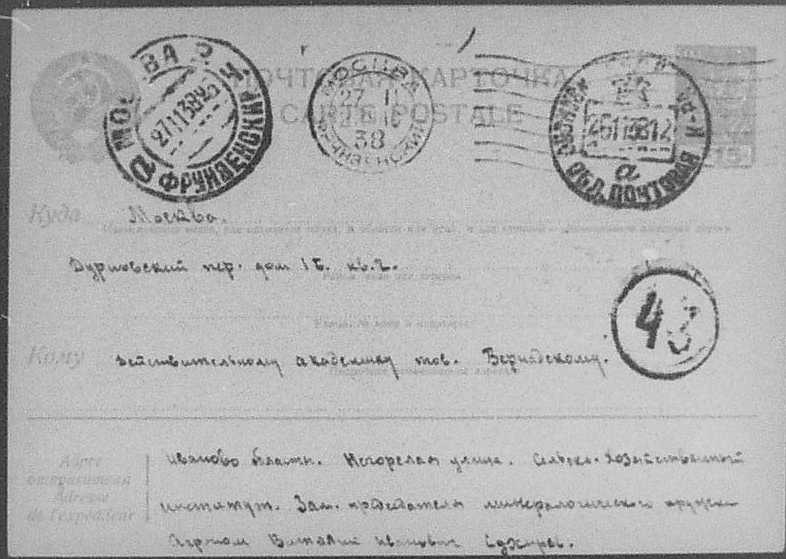 ПОЧТОВАЯ КАРТОЧКА
CARTE POSTALE
МОСКВА
27 11
38
ФРУНЗЕНСКИЙ
МОСКВА
ФРУНЗЕНСКИЙ
ОБЛ. ПОЧТОВАЯ
а
15
Куда Москва.
Дурновский пер. дом 1б. кв. 2.
43
Кому действительному академику тов. Вернадскому.
Адрес
отправителя
Adresse
de l'expéditeur
Иваново Область. Негорелая улица. Сельско-Хозяйственный
институт. Зам. председателя минералогического кружка
Агроном Виталий Иванович